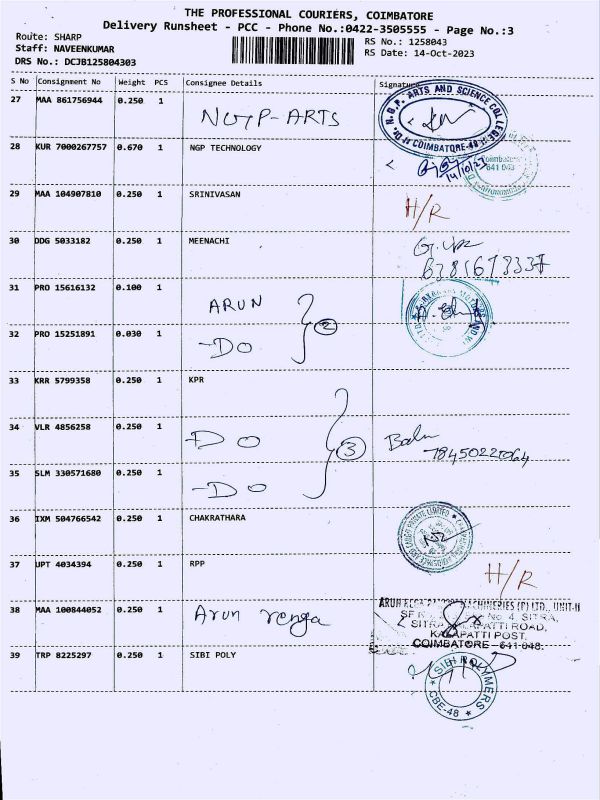 THE PROFESSIONAL COURIERS, COIMBATORE
Delivery Runsheet - PCC - Phone No.:0422-3505555 - Page No.:3
Route: SHARP
Staff: NAVEENKUMAR
DRS No.: DCJB125804303
RS No.: 1258043
RS Date: 14-Oct-2023
S No Consignment No Weight PCS Consignee Details Signature
27 MAA 861756944 0.250 1 NGP-ARTS
ARTS AND SCIENCE COLLEGE
COIMBATORE-48
28 KUR 7000267757 0.670 1 NGP TECHNOLOGY
Coimbatore
641 048
29 MAA 104907810 0.250 1 SRINIVASAN H/R
30 DDG 5033182 0.250 1 MEENACHI
31 PRO 15616132 0.100 1 ARUN
32 PRO 15251891 0.030 1 -DO 2
33 KRR 5799358 0.250 1 KPR
34 VLR 4856258 0.250 1 -DO 3
35 SLM 330571680 0.250 1 -DO
36 IXM 504766542 0.250 1 CHAKRATHARA
37 UPT 4034394 0.250 1 RPP H/R
38 MAA 100844052 0.250 1 Arun renga
MACHINERIES (P) LTD., UNIT-II
No 4, SITRA,
KALAPATTI ROAD,
KALAPATTI POST,
COIMBATORE - 641 048.
39 TRP 8225297 0.250 1 SIBI POLY
SIBI POLYMERS
CBE-48